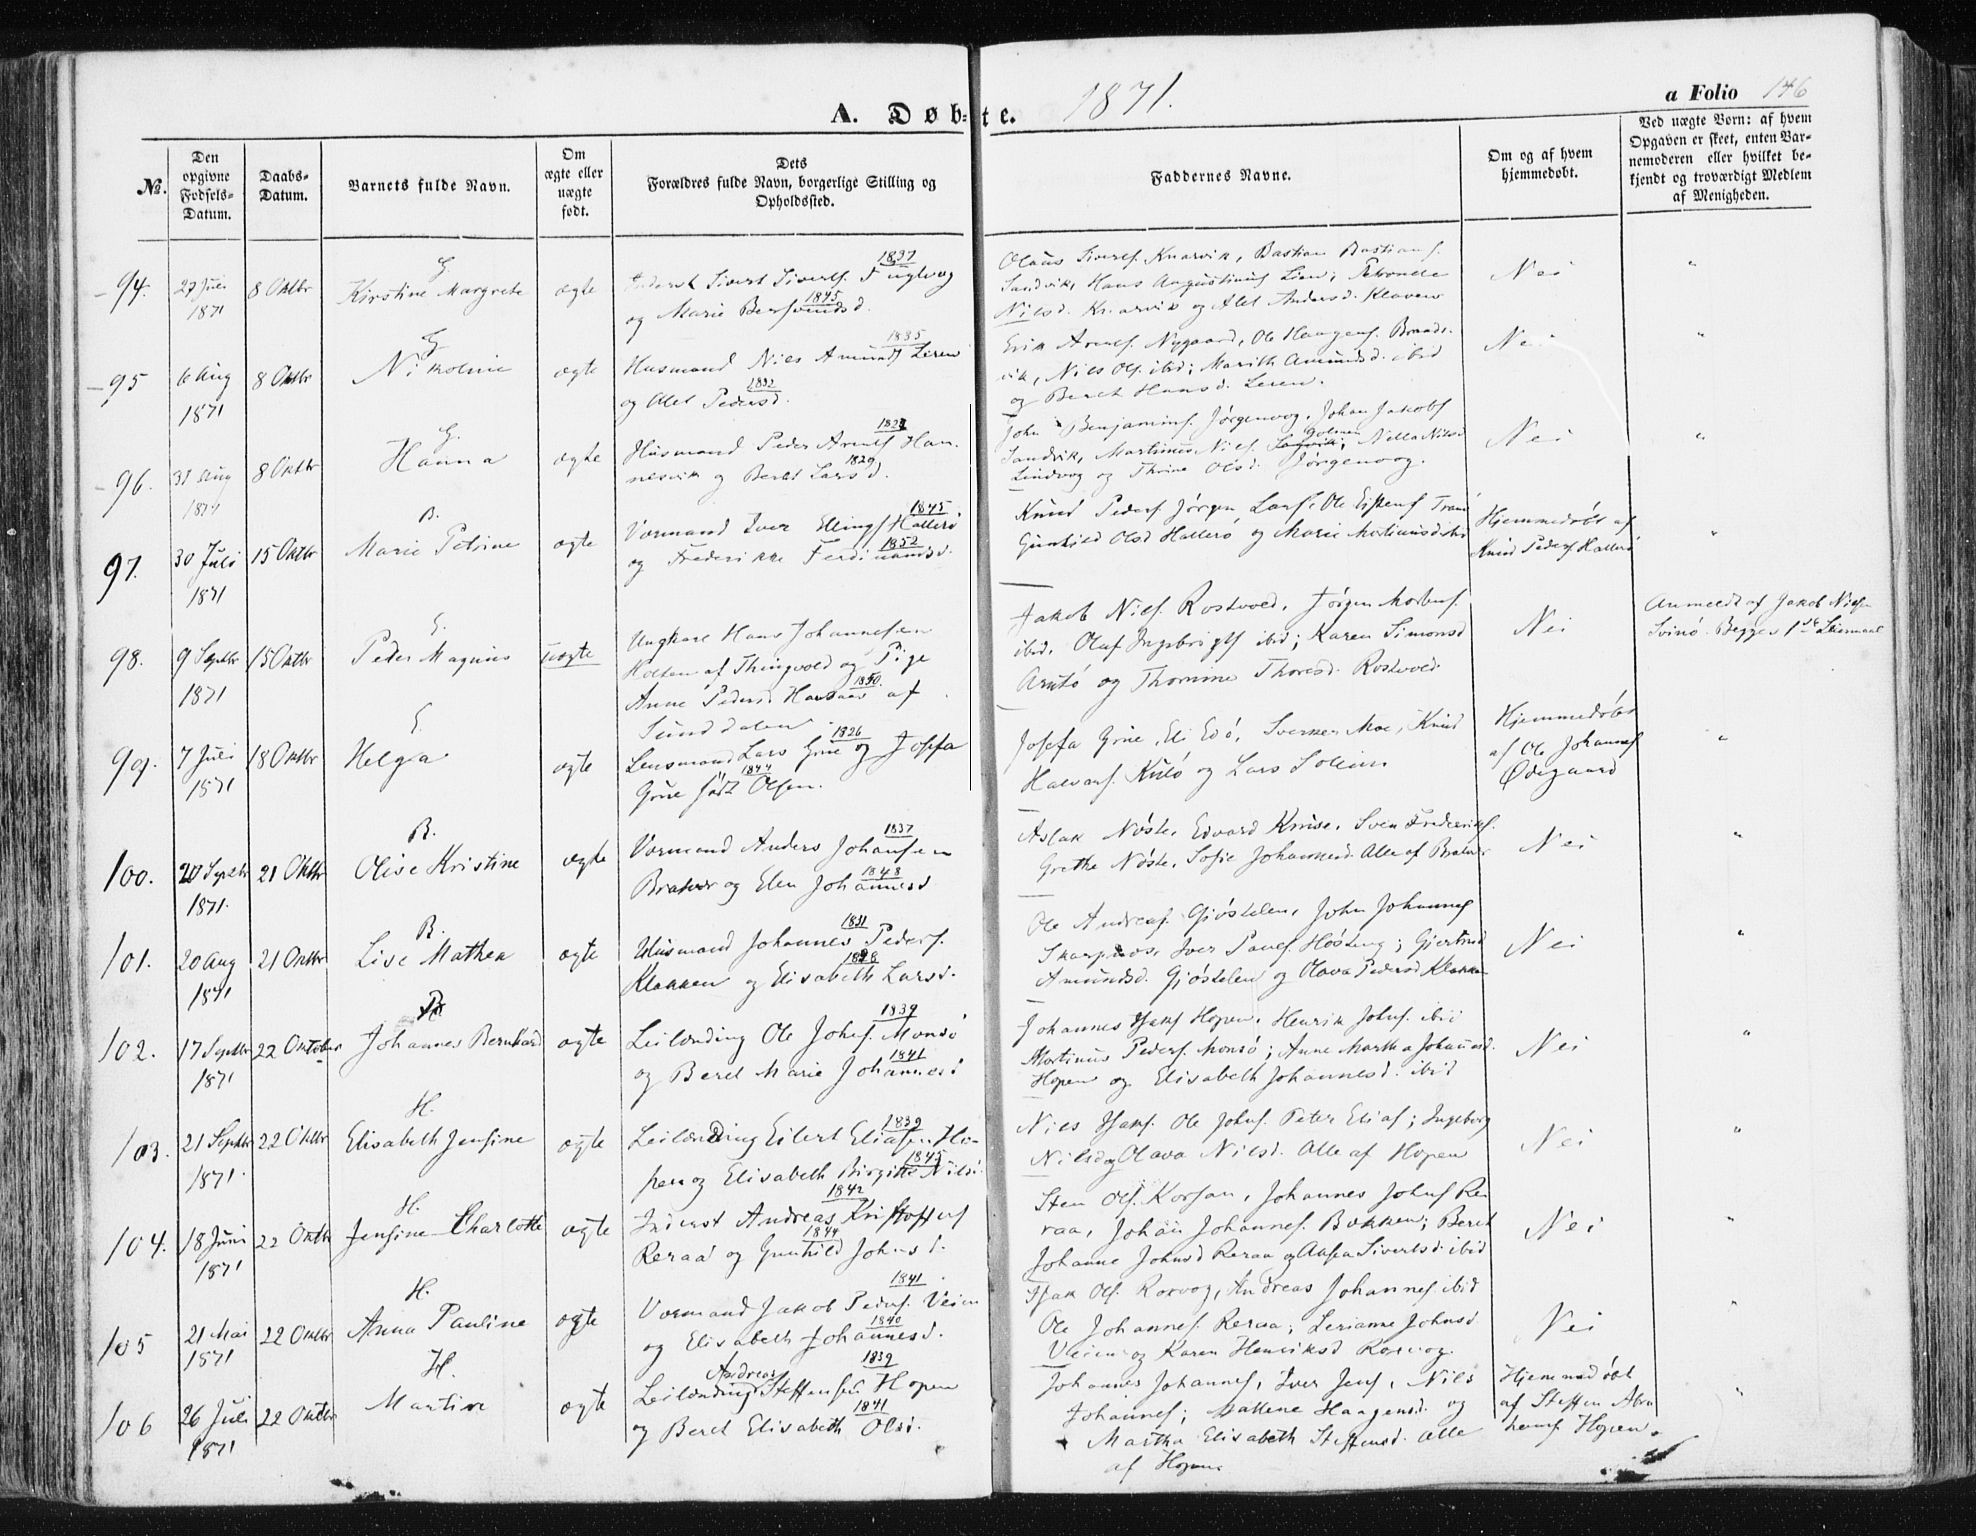 1871.
a Folio 146
A. Døbte.
No.
Den opgivne Fødsels-Datum.
Daabs-Datum.
Barnets fulde Navn.
Om ægte eller uægte født.
Dets Forældres fulde Navn, borgerlige Stilling og Opholdssted.
Faddernes Navne.
Om og af hvem hjemmedøbt.
Ved uægte Børn: af hvem Opgaven er skeet, enten Barnemoderen eller hvilket bekjendt og troværdigt Medlem af Menigheden.
94. 27 Juli 1871 8 Oktbr
G.
Kirstine Margrete ægte
1837
Sivert Sivertſ. Fuglvog
1845
og Marie
Olaus Sivertſ. Knarvik, Bastian Bastianſ.
Sandvik, Hans Augustinuſ Lien; Petronelle
Nilsd. Knarvik og Alet Andersd. Kleven
Nei "
95 6 Aug 1871 8 Oktbr
G.
Nikoline ægte
1835
Husmand Nils Amundſ Leren
1832
og Alet Pedersd.
Erik Arntſ. Nygaard, Ole Haagenſ. Bræds-
vik, Nils Olſ. ibid; Marith Amundsd. ibid
og Beret Hansd. Leren.
Nei "
96. 31 Aug 1871 8 Oktbr
G.
Hanna ægte
Husmand Peder Arntſ Han-
1829
nesvik og Beret Larsd.
John Benjaminſ. Jørgenvog, Johan Jakobſ
Sandvik, Martinus Nilſ. Nella Nilsd
Lindvog og Thrine Olsd. Jørgenvog.
Nei "
97. 30 Juli 1871 15 Oktbr
B.
Marie Petrine ægte
1845
Vormand Iver Ellingſ Hallerö
1852
og Frederikke Ferdinandsd.
Knud Pederſ Jörgen Larſ, Ole Eistenſ Tran
Gunhild Olsd Hallerö og Marie Martinusd. ibid
Hjemmedöbt af
Knud Pederſ Hallerö "
98. 9 Septbr 1871 15 Oktbr
E.
Peder Magnus uægte
Ungkarl Hans Johannesen
Holten af Thingvold og Pige
1850.
Anne Pedersd af
Sunddalen
Jakob Nilſ. Rostvold, Jörgen Mortenſ.
ibid, Olaf Ingebrigtſ ibid; Karen Simonsd
Arntö og Thomine Thoresd. Rostvold
Nei
Anmeldt af Jakob Nilsen
Svinö. Begges 1ste Leiermaal
99. 7 Juli 1871 18 Oktbr
E.
Helga ægte
1826
Lensmand Lars Grue og Josefa
1844
Grue född Olsen.
Josefa Grue, Eli Edö, Sverker Moe, Knud
Halvorſ. Kulö og Lars Solem
Hjemmedöbt
af Ole Johannesſ
Ødegaard "
100. 20 Septbr 1871. 21 Oktbr
B.
Olise Kristine ægte
1837
Vormand Anders Johansen
1848
Bratvær og Elen Johannesd
Aslak Nöste, Edvard Kruse, Sven Frederikſ.
Grethe Nöste, Sofie Johannesd. Alle af Bratvær
Nei "
101. 20 Aug 1871 21 Oktbr
B.
Lise Mathea ægte
1831
Husmand Johannes Pederſ.
1828
Klakken og Elisabeth Larsd.
Ole Andreasſ. Gjöstelen, John Johannesſ
Skarpnes, Iver Paulſ. Hösteng; Gjertrud
Amundsd. Gjöstelen og Olava Pedersd Klakken
Nei "
102. 17 Septbr 1871 22 Oktober
Johannes Bernhard ægte
1839
Leilænding Ole Johnſ. Monsö
1841
og Beret Marie Johannesd
Johannes Isakſ Hopen, Henrik Johnſ. ibid
Martinus Pederſ. Monsö; Anne Martha Johannesd.
Hopen og Elisabeth Johannesd. ibid
Nei "
103. 21 Septbr 1871. 22 Oktbr
H.
Elisabeth Jensine ægte
1839
Leilænding Eilert Eliasen Ho-
1845
pen og Elisabeth Birgitte Nilsd
Nils Isakſ. Ole Johnſ. Peter Eliasſ; Ingeborg
Nilsd og Olava Nilsd. Alle af Hopen
Nei "
104. 18 Juni 1871 22 Oktbr
H.
Jensine Charlotte ægte
1842
Inderst Andreas Kristofferſ
1844
Reraa og Gunhild Johnsd.
Sten Olſ. Korsan, Johannes Johnſ Re-
raa, Johan Johannesſ. Bakken; Beret
Johanne Johnsd Reraa og Sivertsd. ibid
Nei "
105 21 Mai 1871 22 Oktbr
H.
Anna Pauline ægte
1841
Vormand Jakob Pederſ. Veien
1840
og Elisabeth Johannesd.
Isak Olſ. Rorvog, Andreas Johannesſ ibid
Ole Johannesſ. Reraa; Lerianne Johnsd
Veien og Karen Henriksd Rorvog.
Nei "
106 26 Juli 1871 22 Oktbr
H.
Martin ægte
Andreas 1839
Leilænding Steffensen Hopen
1841
og Beret Elisabeth Olsd.
Johannes Johannesſ, Iver Jensſ, Nils
Johannesſ; Mallene Haagensd. og
Martha Elisabeth Steffensd. alle
af Hopen.
Hjemmedöbt
af Steffen Abra-
hamſ Hopen. "